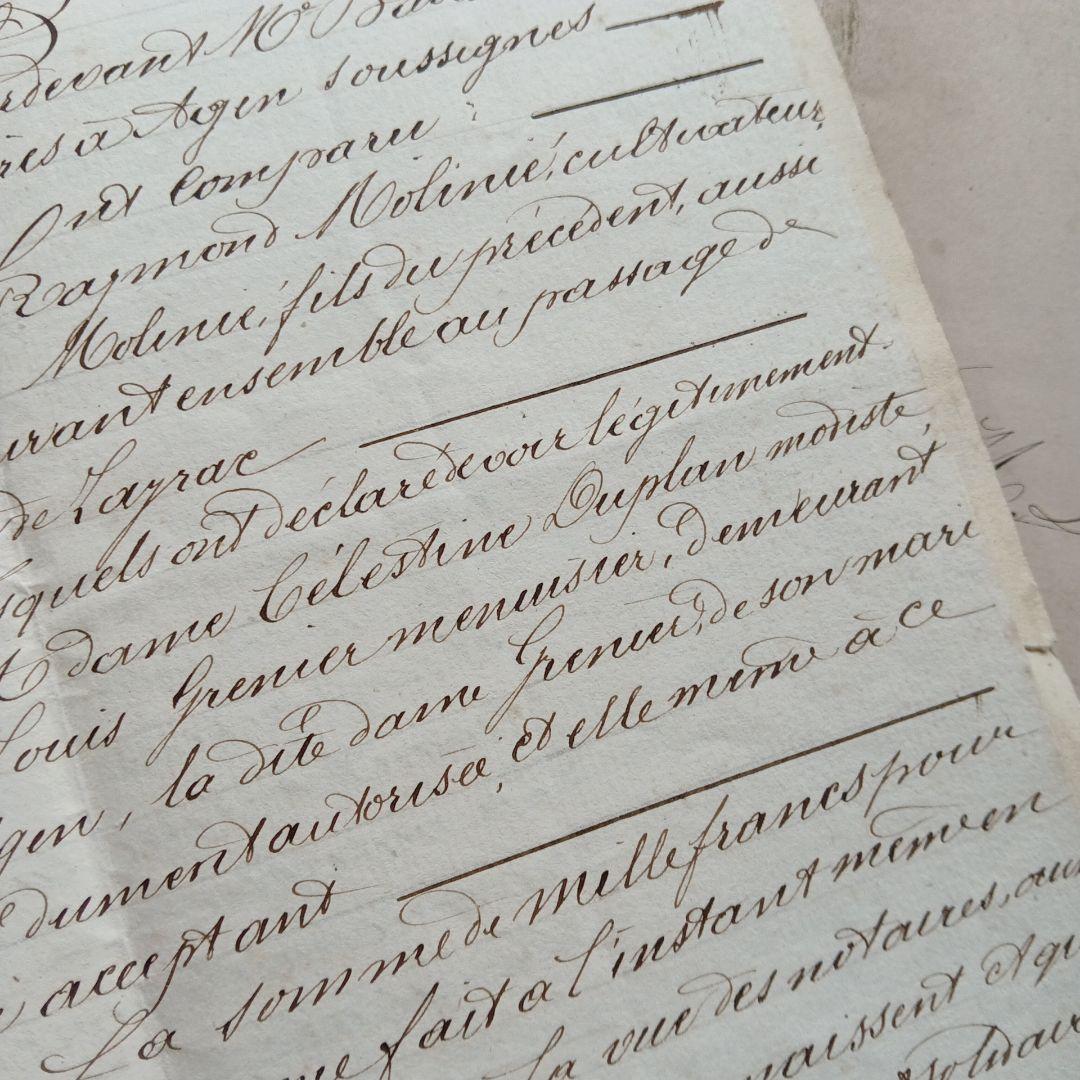 Mᵉ
à Agen soussignés
Ont comparu :
Raymond Molinié, cultivateur,
Molinié, fils du précédent, aussi
ensemble au passage de
de Layrac
ont déclaré devoir légitimement
dame Célestine Duplan modiste,
Louis Grenier menuisier, demeurant
la dite dame Grenier, de son mari
dument autorisée, et elle même à ce
acceptant
La somme de mille francs pour
fait à l'instant même en
la vue des notaires,